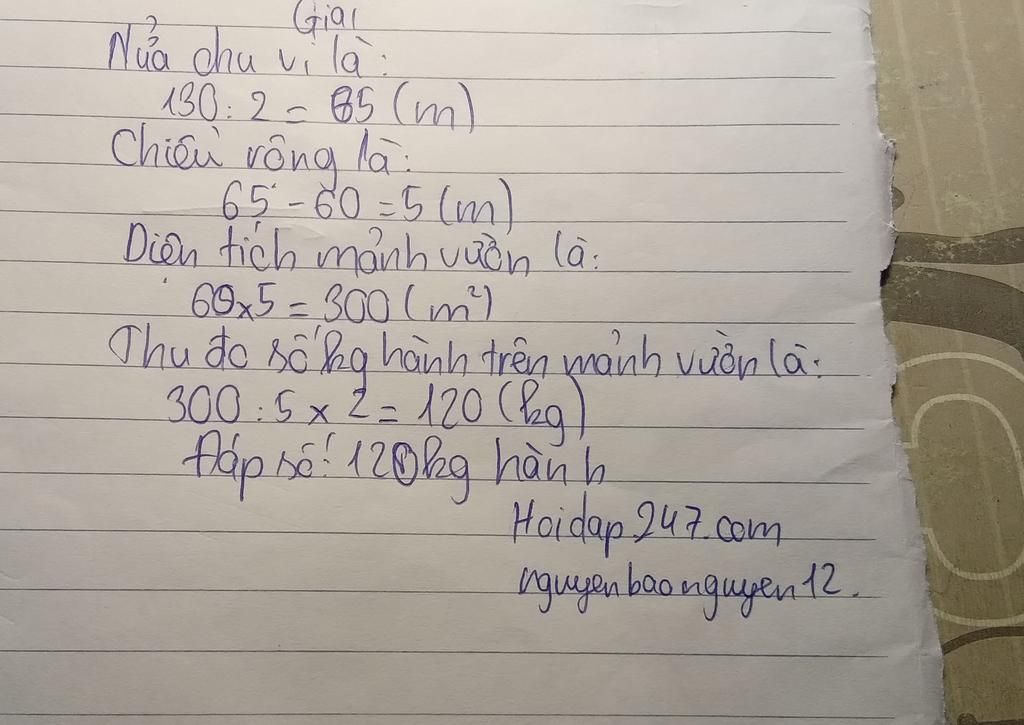 Giải
Nửa chu vi là:
130 : 2 = 65 (m)
Chiều rộng là:
65 - 60 = 5 (m)
Diên tích mảnh vườn là:
60x5 = 300 (m²)
Thu đc số kg hành trên mảnh vườn là:
300 : 5 x 2 = 120 (kg)
Đáp số: 120kg hành
Hoidap247.com
nguyenbaonguyen12.